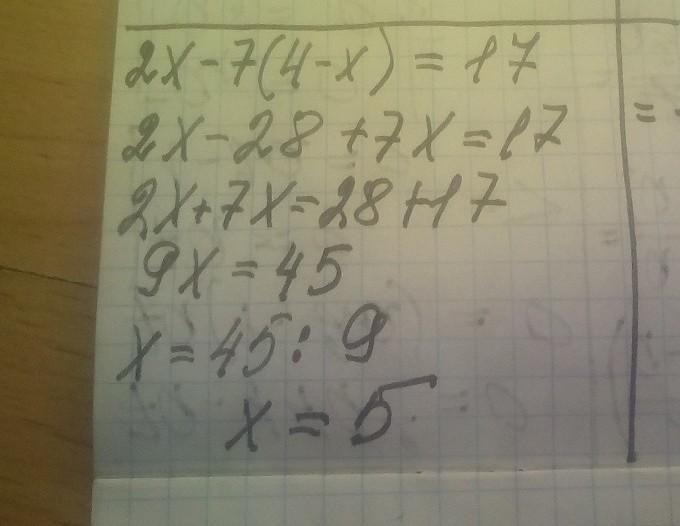 2x-7(4-x)=17
2x-28+7x=17
2x+7x=28+17
9x=45
x=45:9
x=5
=